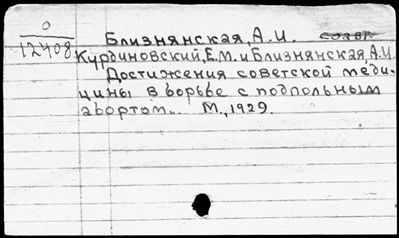 О
12408
Близнянская, А.И. соавт.
Курдиновский, Е.М. и Близнянская, А.И.
Достижения советской меди-
цины в борьбе с подпольным
абортом... М., 1929.